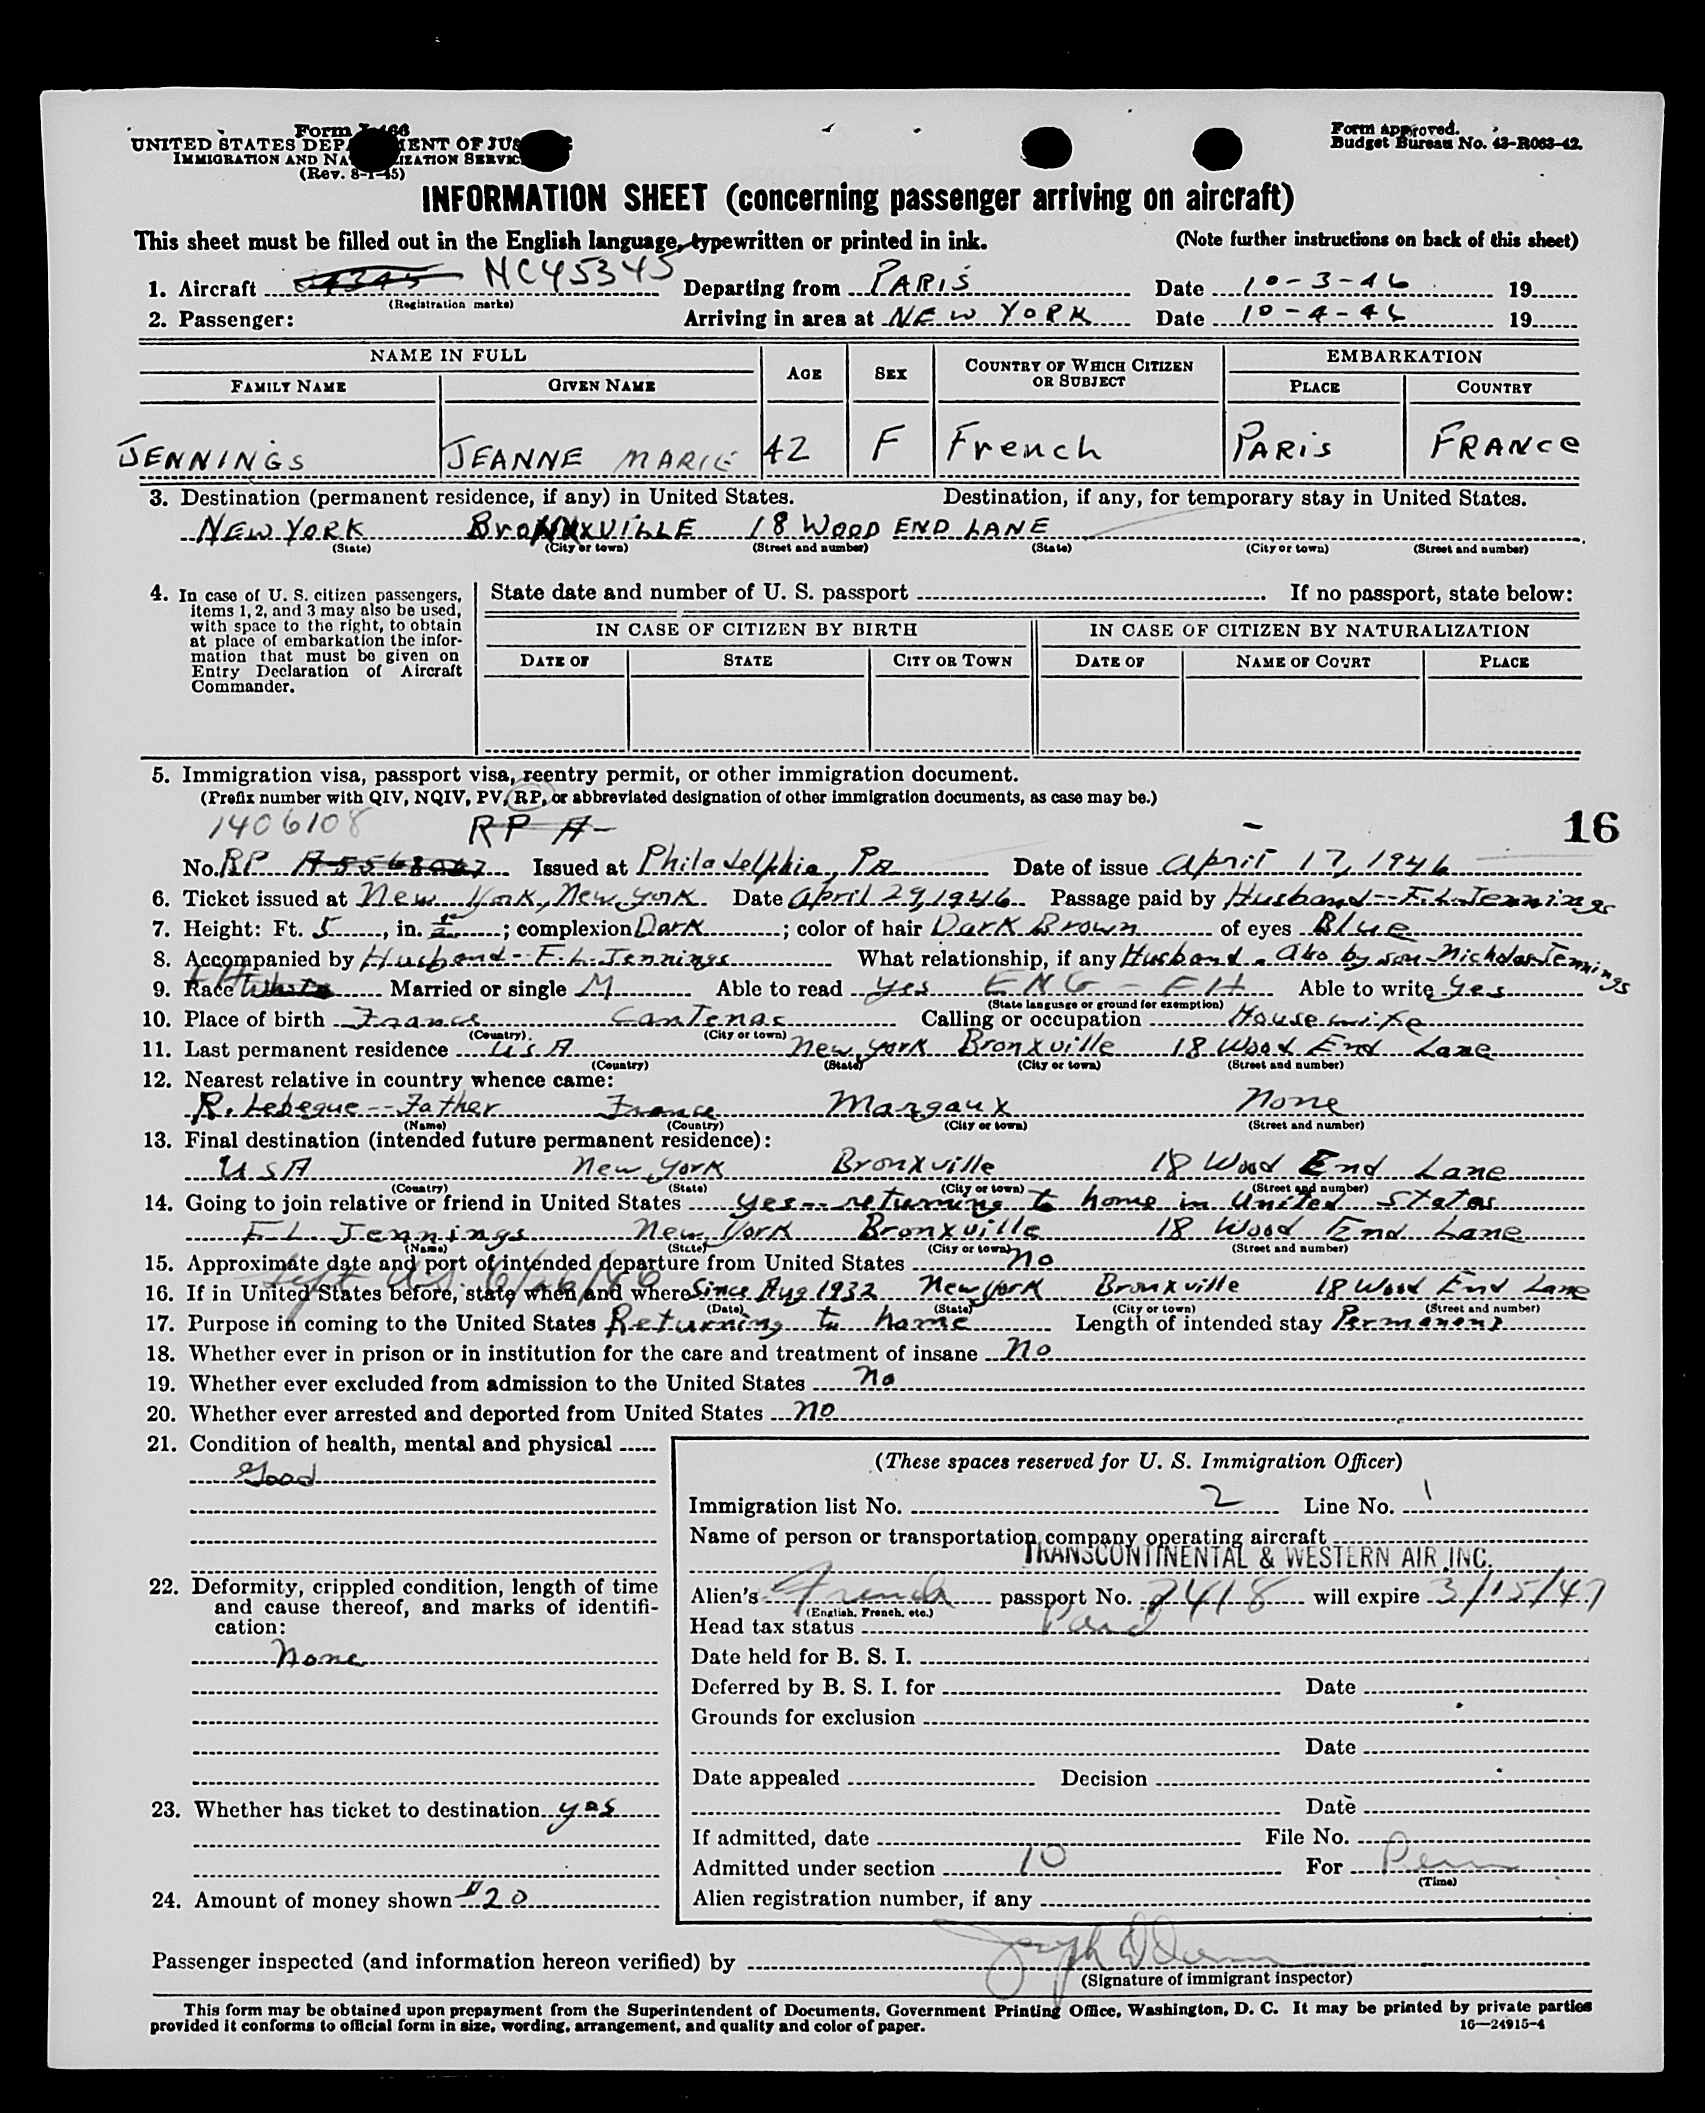 Form I-466
UNITED STATES DEPARTMENT OF JUSTICE
IMMIGRATION AND NATURALIZATION SERVICE
(Rev. 8-1-45)
Form approved.
Budget Bureau No. 43-R063-42.
INFORMATION SHEET (concerning passenger arriving on aircraft)
This sheet must be filled out in the English language, typewritten or printed in ink. (Note further instructions on back of this sheet)
1. Aircraft NC45345 Departing from PARIS Date 10-3-46 19
(Registration marks)
2. Passenger: Arriving in area at NEW YORK Date 10-4-46 19
NAME IN FULL AGE SEX COUNTRY OF WHICH CITIZEN OR SUBJECT EMBARKATION
FAMILY NAME GIVEN NAME PLACE COUNTRY
JENNINGS JEANNE MARIE 42 F French PARIS FRANCE
3. Destination (permanent residence, if any) in United States. Destination, if any, for temporary stay in United States.
NEW YORK BRONXVILLE 18 WOOD END LANE
(State) (City or town) (Street and number) (State) (City or town) (Street and number)
4. In case of U. S. citizen passengers, items 1, 2, and 3 may also be used, with space to the right, to obtain at place of embarkation the information that must be given on Entry Declaration of Aircraft Commander.
State date and number of U. S. passport If no passport, state below:
IN CASE OF CITIZEN BY BIRTH IN CASE OF CITIZEN BY NATURALIZATION
DATE OF STATE CITY OR TOWN DATE OF NAME OF COURT PLACE
5. Immigration visa, passport visa, reentry permit, or other immigration document.
(Prefix number with QIV, NQIV, PV, RP, or abbreviated designation of other immigration documents, as case may be.)
1406108 RP A- 16
No. RP Issued at Philadelphia, PA Date of issue April 17, 1946
6. Ticket issued at New York, New York Date April 29, 1946 Passage paid by Husband -- F. L. Jennings
7. Height: Ft. 5, in. ; complexion Dark; color of hair Dark Brown of eyes Blue
8. Accompanied by Husband - F. L. Jennings What relationship, if any Husband. Also by son Nicholas Jennings
9. Race Married or single M Able to read yes ENG - FH Able to write yes
(State language or ground for exemption)
10. Place of birth France Cantenac Calling or occupation Housewife
(Country) (City or town)
11. Last permanent residence USA New York Bronxville 18 Wood End Lane
(Country) (State) (City or town) (Street and number)
12. Nearest relative in country whence came:
R. Lebegue -- Father France Margaux None
(Name) (Country) (City or town) (Street and number)
13. Final destination (intended future permanent residence):
USA New York Bronxville 18 Wood End Lane
(Country) (State) (City or town) (Street and number)
14. Going to join relative or friend in United States yes -- returning to home in United States
F. L. Jennings New York Bronxville 18 Wood End Lane
(Name) (State) (City or town) (Street and number)
15. Approximate date and port of intended departure from United States no
Left U.S. 6/26/46
16. If in United States before, state when and where Since Aug 1932 New York Bronxville 18 Wood End Lane
(Date) (State) (City or town) (Street and number)
17. Purpose in coming to the United States Returning to home Length of intended stay Permanent
18. Whether ever in prison or in institution for the care and treatment of insane no
19. Whether ever excluded from admission to the United States no
20. Whether ever arrested and deported from United States no
21. Condition of health, mental and physical
Good
22. Deformity, crippled condition, length of time and cause thereof, and marks of identification:
None
23. Whether has ticket to destination yes
24. Amount of money shown $20
(These spaces reserved for U. S. Immigration Officer)
Immigration list No. 2 Line No. 1
Name of person or transportation company operating aircraft
TRANSCONTINENTAL & WESTERN AIR INC.
Alien's French passport No. 7418 will expire 3/15/47
(English, French, etc.)
Head tax status Paid
Date held for B. S. I.
Deferred by B. S. I. for Date
Grounds for exclusion
Date
Date appealed Decision
Date
If admitted, date File No.
Admitted under section 10 For Perm
(Time)
Alien registration number, if any
Passenger inspected (and information hereon verified) by Joseph
(Signature of immigrant inspector)
This form may be obtained upon prepayment from the Superintendent of Documents, Government Printing Office, Washington, D. C. It may be printed by private parties
provided it conforms to official form in size, wording, arrangement, and quality and color of paper. 16—24915-4